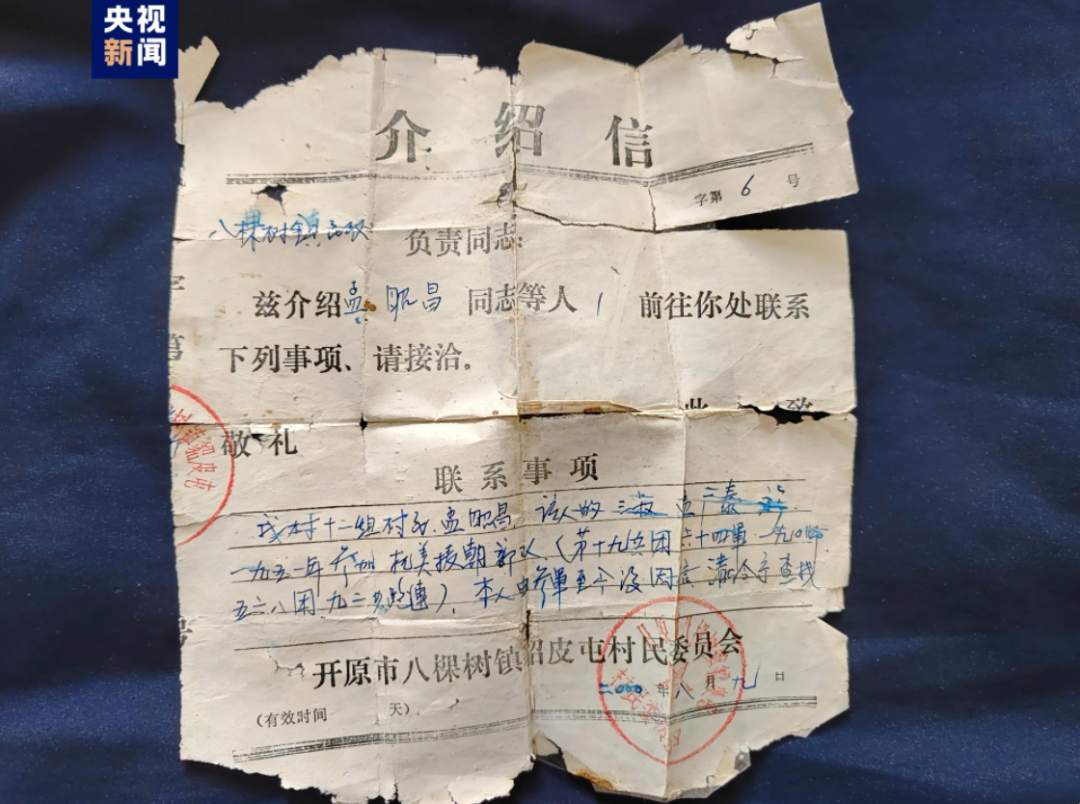 央视
新闻
介绍信
字第 6 号
八棵树镇 负责同志:
兹介绍孟昭昌 同志等人 1 前往你处联系
下列事项、请接洽。
此 致
敬礼
联系事项
我村十二组村民孟昭昌。该人的三 孟三泰
一九五一年参加抗美援朝部队(第十九兵团六十四军一九〇师
五六八团九二步炮连)。本人由参军至今没回信 请给予查找
开原市八棵树镇貂皮屯村民委员会
二000年八月九日
(有效时间 天)